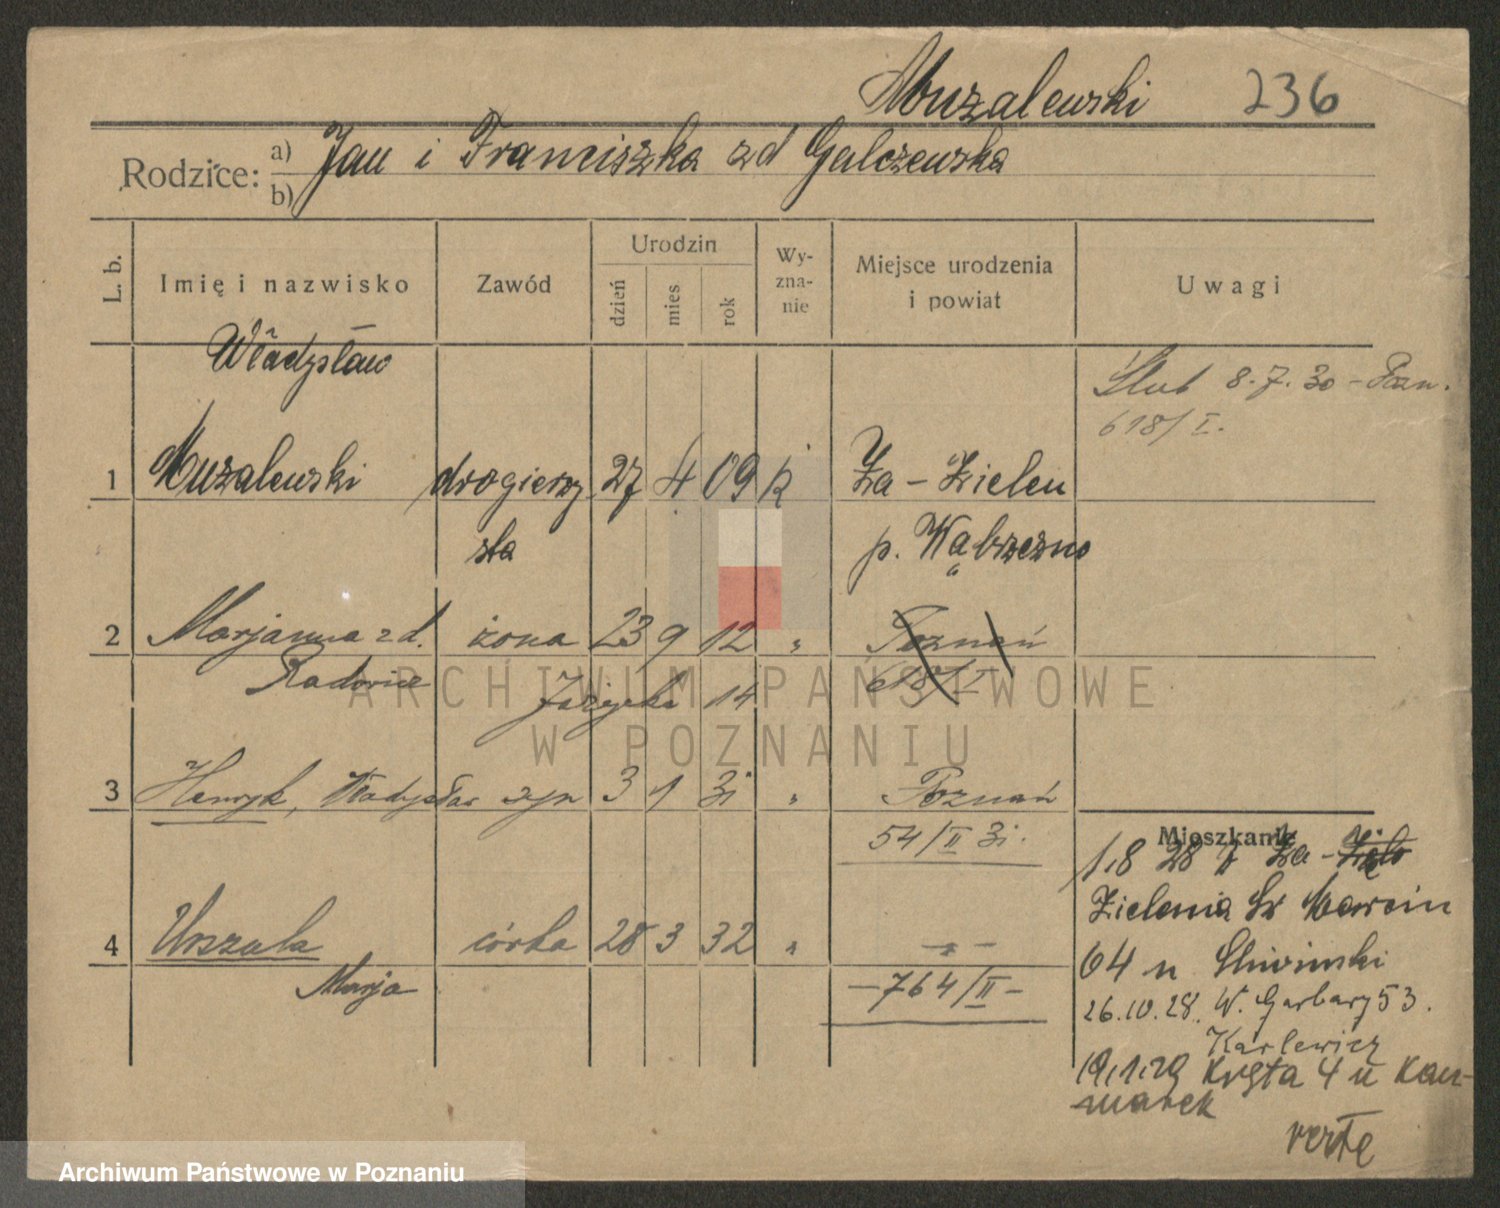 Muzalewski 236
Rodzice: a) b) Jan i Franciszka zd Galczewska
L. b. Imię i nazwisko Zawód Urodzin dzień mies rok Wyznanie Miejsce urodzenia i powiat Uwagi
Władysław
Ślub 8.7.30 - Pozn.
618/I.
1 Muzalewski drogierzy 27 4 09 k Za - Zieleń
sta p. Wąbrzeźno
2 Marjanna zd. żona 23 9 12 " Poznań
Jażycka 14 618/I
3 Henryk, Władysław syn 3 1 31 " Poznań
54/II 31.
Mieszkanie
1.8 28 Za - Zielo
Zielenia Św Marcin
4 Urszula córka 28 3 32 " - " -
Marja
64 u Śliwinski
- 764/II -
26.10.28. W. Garbary 53.
Karlewicz
19.1.29 Kręta 4 u Kacz-
marek
verte
ARCHIWUM PAŃSTWOWE
W POZNANIU
Archiwum Państwowe w Poznaniu